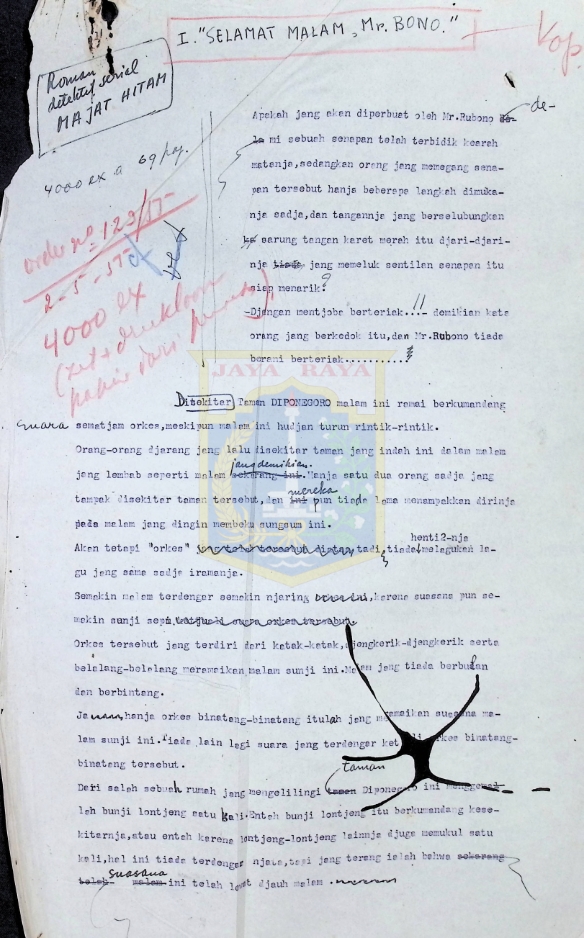 I. "SELAMAT MALAM, Mr. BONO."
Vop.
Roman
detektif serial
MAJAT HITAM
4000 ex a 69 pag.
order no 123/57
2-5-57
4000 ex
(zet + drukloon
papier dari
Apakah jang akan diperbuat oleh Mr.Rubono de-
mi sebuah senapan telah terbidik kearah
matanja,sedangkan orang jang memegang sena-
pan tersebut hanja beberapa langkah dimuka-
nja sadja,dan tangannja jang berselubungkan
sarung tangan karet merah itu djari-djari-
nja jang memeluk sentilan senapan itu
siap menarik?
-Djangan mentjoba berteriak...!! - demikian kata
orang jang berkedok itu,dan Mr.Rubono tiada
berani berteriak...........
JAYA RAYA
Disekitar Taman DIPONEGORO malam ini ramai berkumandang
suara sematjam orkes,meskipun malam ini hudjan turun rintik-rintik.
Orang-orang djarang jang lalu disekitar taman jang indah ini dalam malam
jang lembab seperti malam sekarang ini. jang demikian. Hanja satu dua orang sadja jang
tampak disekitar taman tersebut,dan ini mereka pun tiada lama menampakkan dirinja
pada malam jang dingin membeku sungsum ini.
Akan tetapi "orkes" jang telah tersebut diatas tadi, tiada henti2-nja melagukan la-
gu jang sama sadja iramanja.
Semakin malam terdengar semakin njaring ,karena suasana pun se-
makin sunji sepi
Orkes tersebut jang terdiri dari katak-katak,djengkerik-djengkerik serta
belalang-belalang meramaikan malam sunji ini.Malam jang tiada berbulan
dan berbintang.
Ja hanja orkes binatang-binatang itulah jang meramaikan suasana ma-
lam sunji ini.Tiada lain lagi suara jang terdengar orkes binatang-
binatang tersebut.
Dari salah sebuah rumah jang mengelilingi taman Diponegoro ini
lah bunji lontjeng satu kali.Entah bunji lontjeng itu berkumandang kese-
kitarnja,atau entah karena lontjeng-lontjeng lainnja djuga memukul satu
kali,hal ini tiada terdengar njata,tapi jang terang ialah bahwa sekarang
telah suasana malam ini telah larut djauh malam.